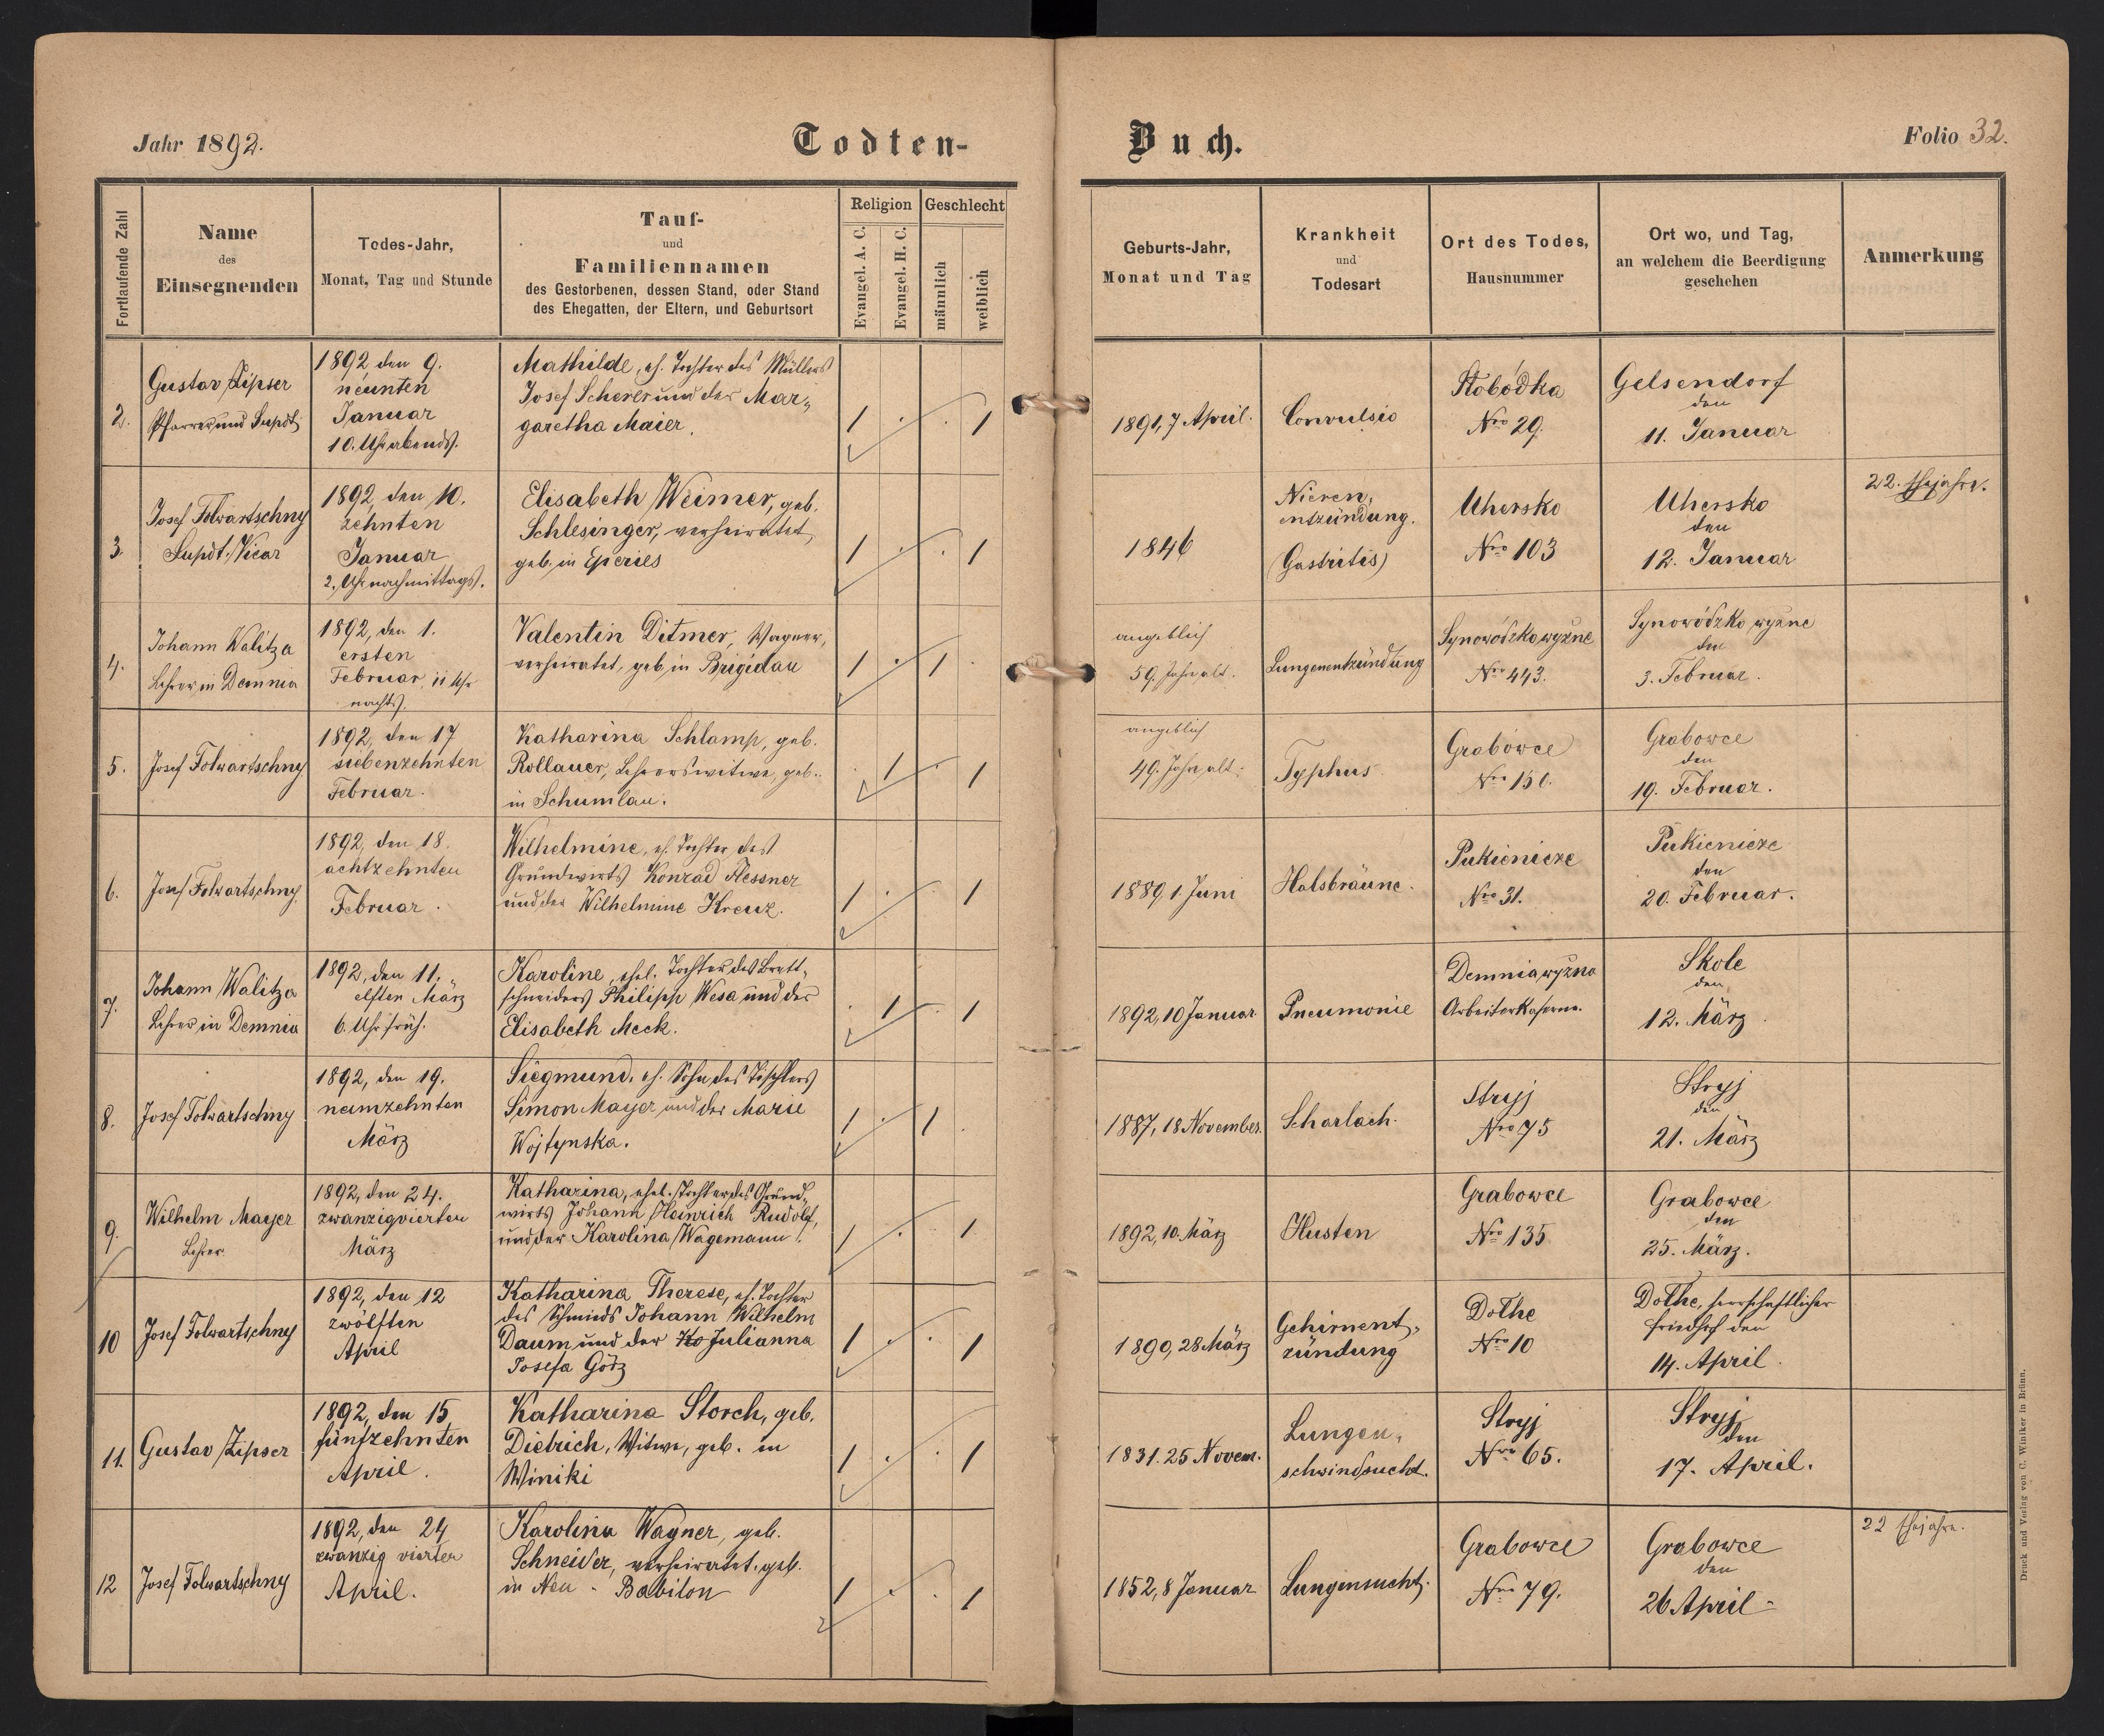 Jahr 1892.
Todten-
Buch.
Folio 32.
Fortlaufende Zahl
Name
des
Einsegnenden
Todes-Jahr,
Monat, Tag und Stunde
Tauf-
und
Familiennamen
des Gestorbenen, dessen Stand, oder Stand
des Ehegatten, der Eltern, und Geburtsort
Religion
Evangel. A. C.
Evangel. H. C.
Geschlecht
männlich
weiblich
Geburts-Jahr,
Monat und Tag
Krankheit
und
Todesart
Ort des Todes,
Hausnummer
Ort wo, und Tag,
an welchem die Beerdigung
geschehen
Anmerkung
2.
Gustav Zipser
Pfarrer und Supdt
1892, den 9.
neunten
Januar
10. Uhr abends.
Mathilde, eh. Tochter des Müllers
Josef Scherer und der Mar-
garetha Maier.
1 . . 1
1891, 7 April.
Convulsio
Nro 29.
Gelsendorf
den
11. Januar
3.
Josef Folwartschny
Supdt. Vicar
1892, den 10.
zehnten
Januar
2. Uhr nachmittags.
Elisabeth Weimer, geb.
Schlesinger, verheiratet,
geb. in Eperies
1 . . 1
1846
Nieren-
entzündung.
(Gastritis)
Uhersko
Nro 103
Uhersko
den
12. Januar
22. Ehejahre.
4.
Johann Walitza
Lehrer in Demnia
1892, den 1.
ersten
Februar, 11 Uhr
nachts.
Valentin Ditmer, Wagner,
verheiratet, geb. in Brigidau
1 . 1 .
angeblich
59. Jahre alt.
Lungenentzündung
Synowódzko wyżne
Nro 443.
Synowódzko wyżne
den
3. Februar.
5.
Josef Folwartschny
1892, den 17
siebenzehnten
Februar.
Katharina Schlamp, geb.
Rollauer, Lehrerswitwe, geb.
in Schumlau.
. 1 . 1
angeblich
49. Jahre alt.
Typhus
Grabowce
Nro 150.
Grabowce
den
19. Februar.
6.
Josef Folwartschny.
1892, den 18.
achtzehnten
Februar.
Wilhelmine, eh. Tochter des
Grundwirts Konrad Hessner
und der Wilhelmine Kreuz.
1 . . 1
1889, 1. Juni
Halsbräune.
Pukienicze
Nro 31.
Pukienicze
den
20. Februar.
7.
Johann Walitza
Lehrer in Demnia
1892, den 11.
elften März
6. Uhr früh.
Karoline, ehel. Tochter des Brett-
schneiders Philipp Wesa und der
Elisabeth Meck.
. 1 . 1
1892, 10 Januar
Pneumonie
Demnia wyżna
Arbeiterkaserne.
Skole
den
12. März
8.
Josef Folwartschny
1892, den 19.
neunzehnten
März
Siegmund, eh. Sohn des Tischlers
Simon Mayer und der Marie
Wojtynska.
1 . 1 .
1887, 18 November.
Scharlach.
Stryj
Nro 75
Stryj
den
21. März
9.
Wilhelm Mayer
Lehrer
1892, den 24.
zwanzigvierten
März
Katharina, ehel. Tochter des Grund-
wirts Johann Heinrich Rudolf,
und der Karolina Wagemann.
1 . 1
1892, 10. März
Husten
Grabowce
Nro 135
Grabowce
den
25. März.
10
Josef Folwartschny
1892, den 12
zwölften
April
Katharina Therese, eh. Tochter
des Schmieds Johann Wilhelm
Daum und der Ka Julianna
Josefa Görz
1 . . 1
1890, 28 März
Gehirnent-
zündung
Dołhe
Nro 10
Dołhe, herrschaftlicher
Friedhof den
14. April.
11.
Gustav Zipser
1892, den 15
fünfzehnten
April.
Katharina Storch, geb.
Dietrich, Witwe, geb. in
Winiki
1 . . 1
1831. 25 Novem.
Lungen-
schwindsucht.
Stryj
Nro 65.
Stryj
den
17. April.
12
Josef Folwartschny
1892, den 24
zwanzig vierten
April.
Karolina Wagner, geb.
Schneider, verheiratet, geb.
in Neu-Babilon
1 . . 1
1852, 8 Januar
Lungensucht.
Grabowce
Nro 79.
Grabowce
den
26 April
22 Ehejahre.
Druck und Verlag von C. Winiker in Brünn.